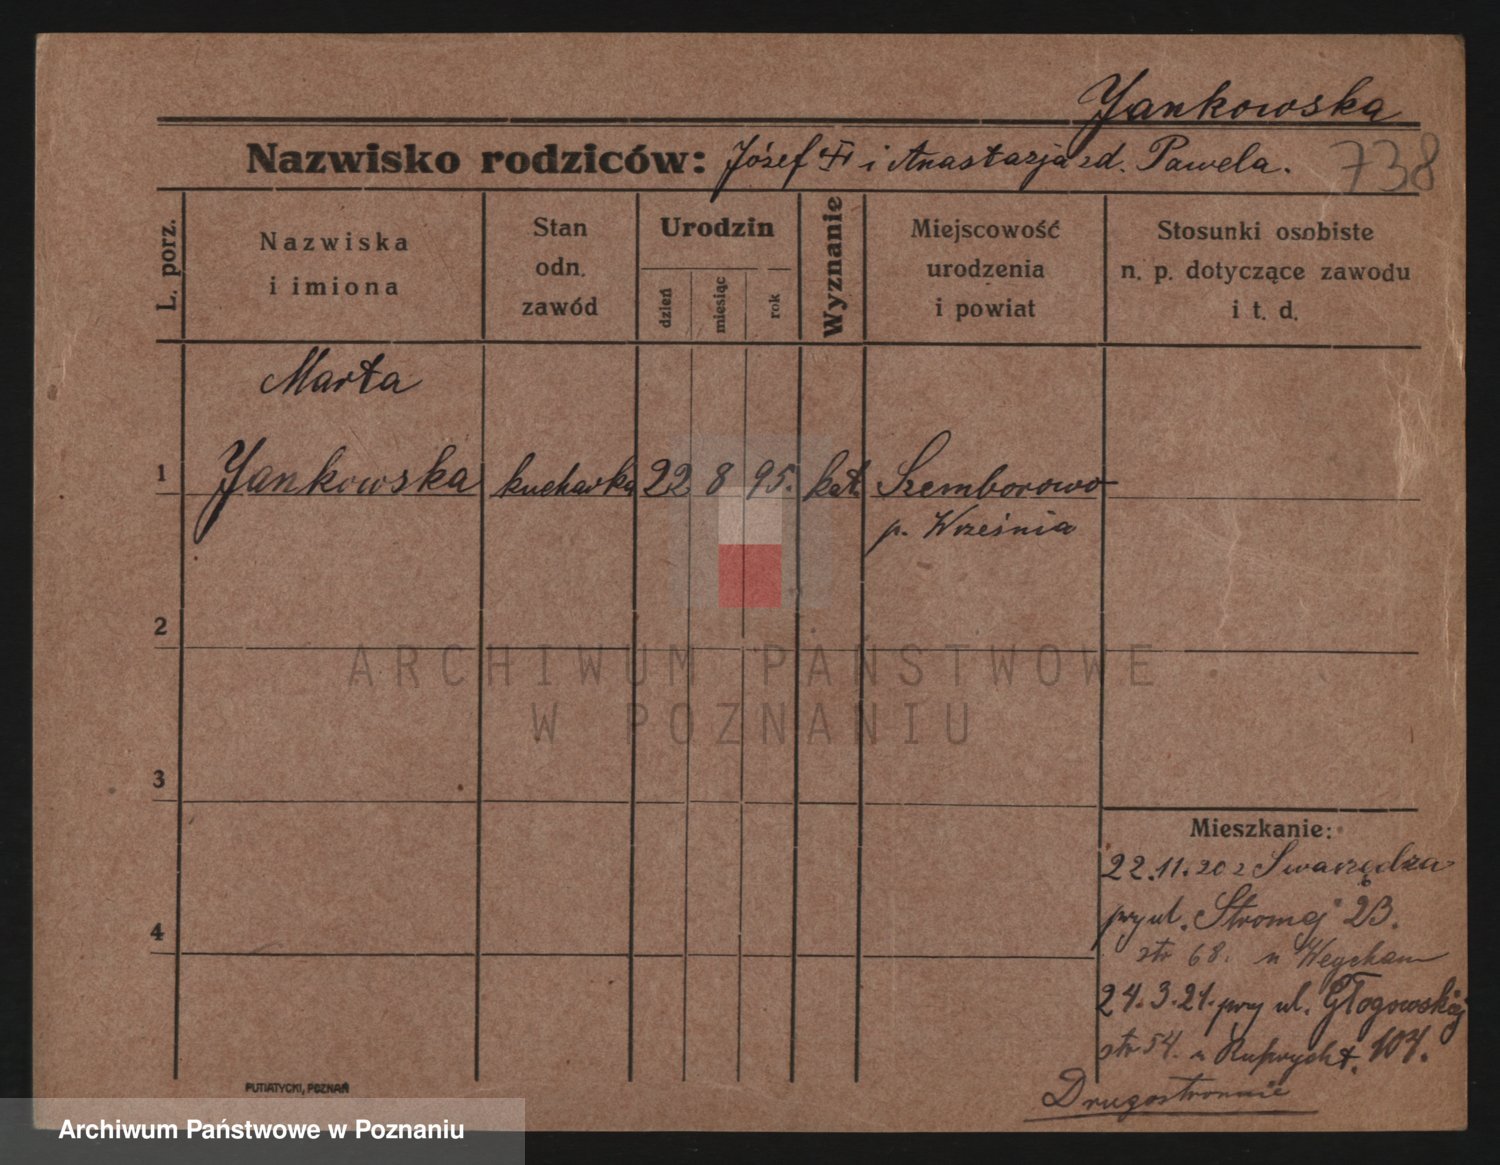 Jankowska
Nazwisko rodziców: Józef i Anastazja zd. Pawela.
738
L. porz.
Nazwiska
i imiona
Stan
odn.
zawód
Urodzin
dzień
miesiąc
rok
Wyznanie
Miejscowość
urodzenia
i powiat
Stosunki osobiste
n. p. dotyczące zawodu
i t. d.
Marta
1 Jankowska kucharka 22 8 95. kat Szemborowo
p. Września
2
ARCHIWUM PAŃSTWOWE
W POZNANIU
3
Mieszkanie:
22.11.20 z Swarzędza
przy ul. Stromej 23.
4
str 68. u Weycham
24.3.21. przy ul. Głogowskiej
str 54. u 104.
Drugostronnie
PUTIATYCKI, POZNAŃ
Archiwum Państwowe w Poznaniu